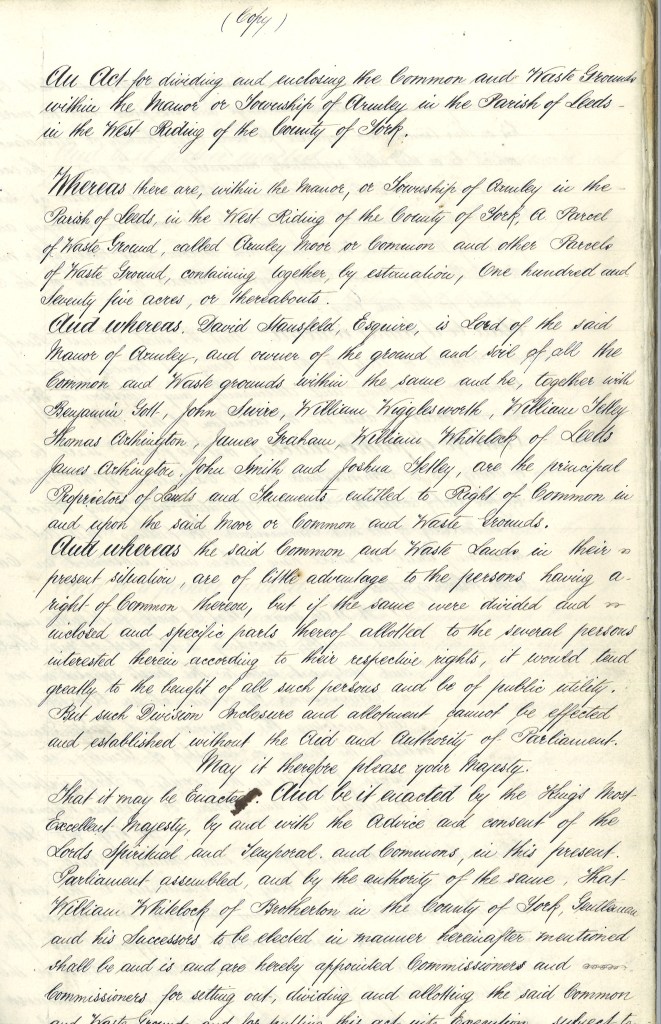 (Copy)
An Act for dividing and enclosing the Common and Waste Grounds
within the Manor or Township of Armley in the Parish of Leeds -
in the West Riding of the County of York.
Whereas there are, within the Manor, or Township of Armley in the -
Parish of Leeds, in the West Riding of the County of York, A Parcel
of Waste Ground, called Armley Moor or Common and other Parcels
of Waste Ground, containing together, by estimation, One hundred and
Seventy five acres, or thereabouts.
And whereas, David Stansfeld, Esquire, is Lord of the said
Manor of Armley, and owner of the ground and soil of all the
Common and Waste grounds within the same and he, together with
Benjamin Gott, John Swire, William Wigglesworth, William Tetley
Thomas Arthington, James Graham, William Whitelock of Leeds
James Arthington, John Smith and Joshua Tetley, are the principal
Proprietors of Lands and Tenements entitled to Right of Common in
and upon the said Moor or Common and Waste Grounds.
And whereas the said Common and Waste Lands in their
present situation, are of little advantage to the persons having a
right of Common thereon, but if the same were divided and
inclosed and specific parts thereof allotted to the several persons
interested therein according to their respective rights, it would tend
greatly to the benefit of all such persons and be of public utility.
But such Division Inclosure and allotment cannot be effected
and established without the Aid and Authority of Parliament.
May it therefore please your Majesty.
That it may be Enacted. And be it enacted by the King's Most
Excellent Majesty, by and with the Advice and consent of the
Lords Spiritual and Temporal and Commons, in this present
Parliament assembled, and by the authority of the same, That
William Whitelock of Brotherton in the County of York, Gentleman
and his Successors to be elected in manner hereinafter mentioned
shall be and is and are hereby appointed Commissioners and
Commissioners for setting out, dividing and allotting the said Common
and Waste Grounds and for putting this act into Execution subject to